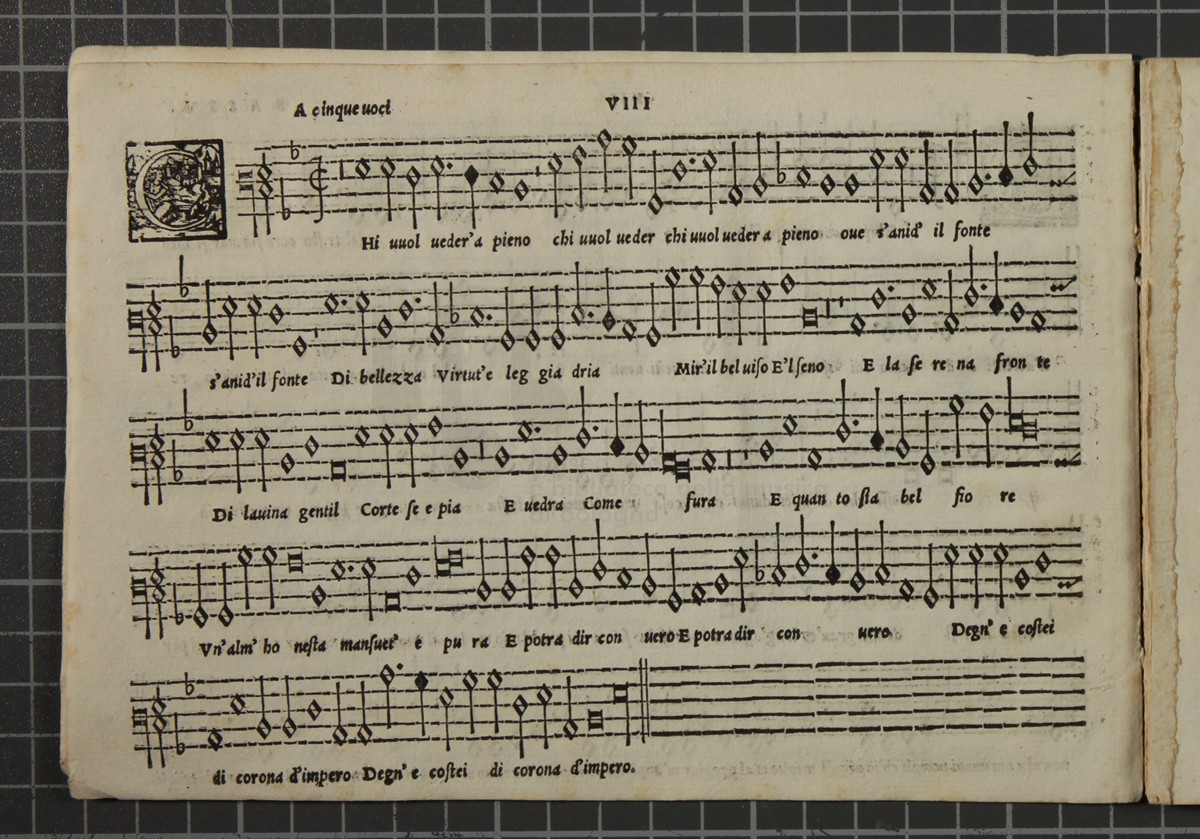 A cinque uoci
VIII
CHi uuol ueder'a pieno chi uuol ueder chi uuol ueder a pieno oue s'anid' il fonte
s'anid'il fonte Di bellezza Virtut'e leg gia dria Mir'il bel uiso E'l seno E la se re na fron te
Di lauina gentil Corte se e pia E uedra Come fura E quan to sta bel fio re
Vn'alm' ho nesta mansuet' e pu ra E potra dir con uero E potra dir con uero Degn' e costei
di corona d'impero Degn' e costei di corona d'impero.